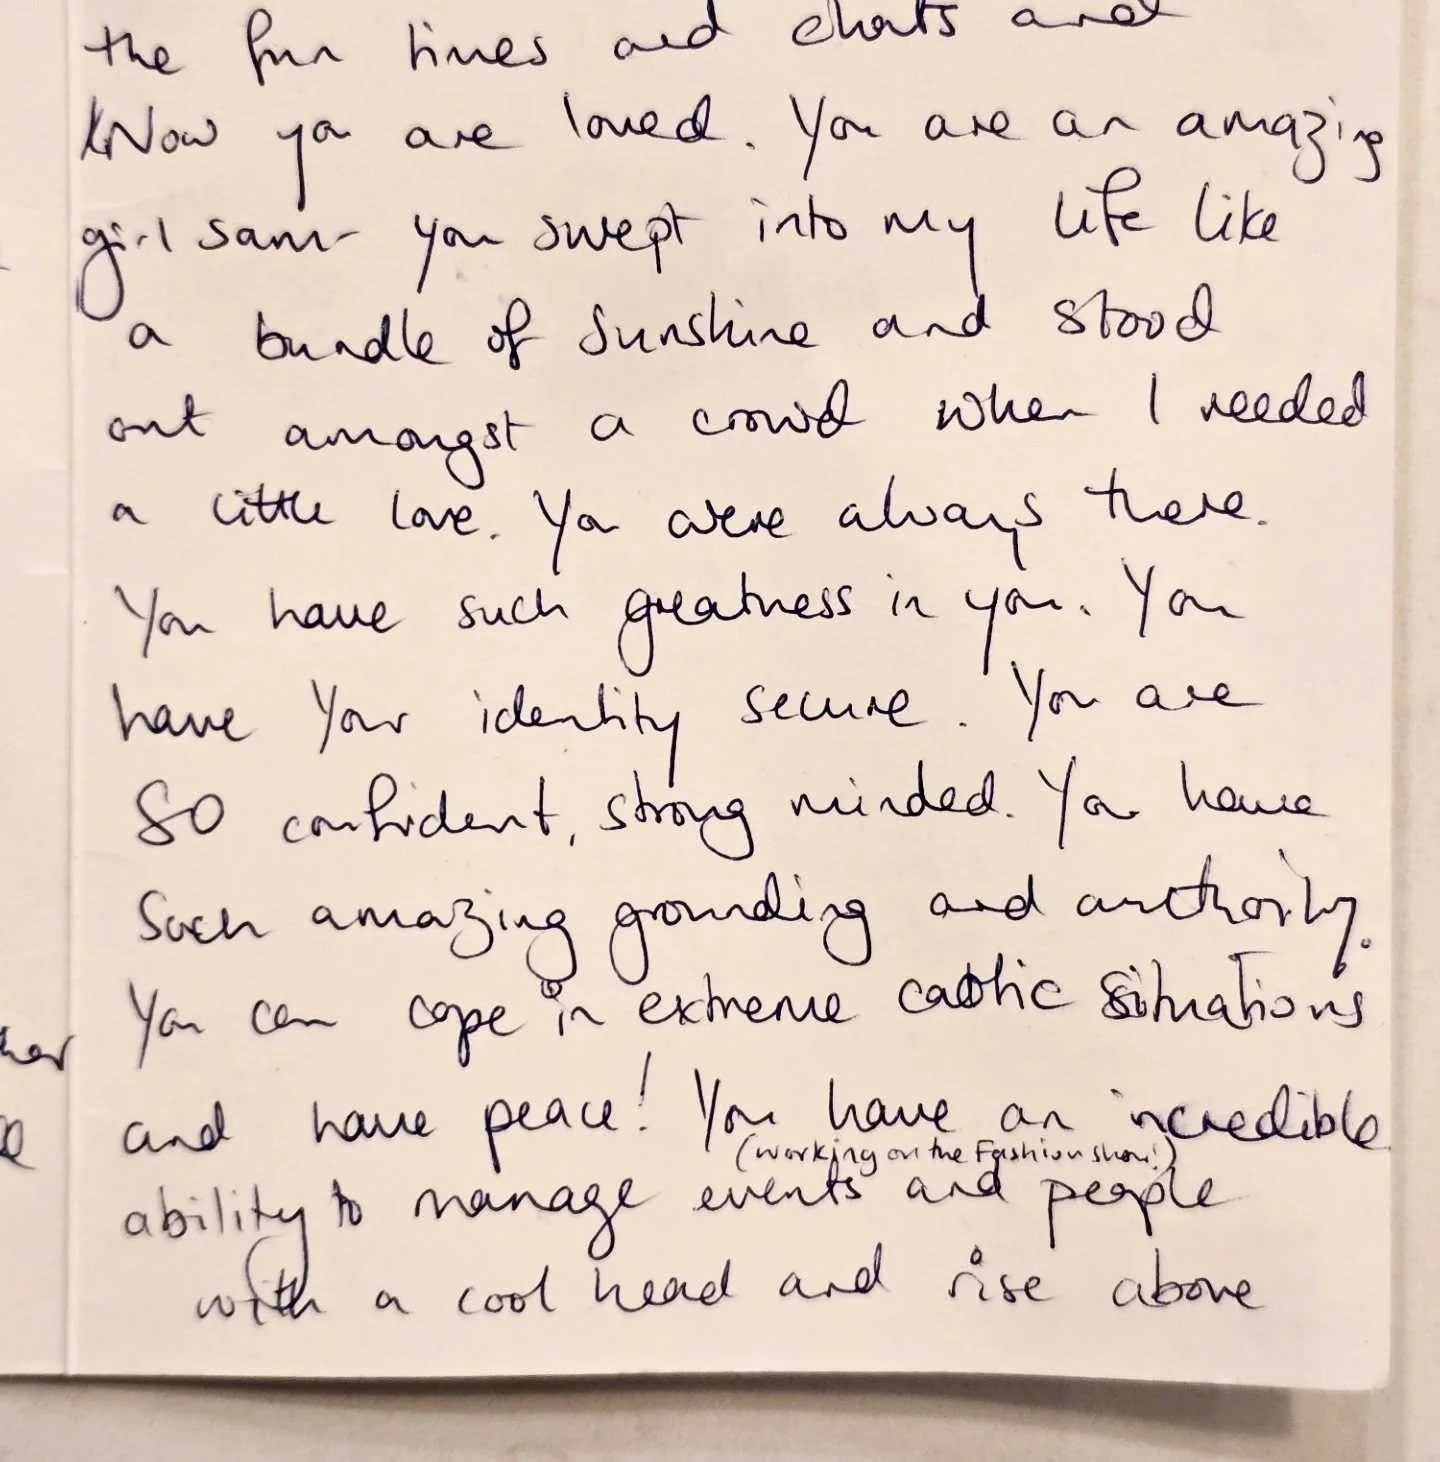 the fun times and chats and
know you are loved. You are an amazing
girl Sam - you swept into my life like
a bundle of sunshine and stood
out amongst a crowd when I needed
a little love. You were always there.
You have such greatness in you. You
have your identity secure. You are
SO confident, strong minded. You have
such amazing grounding and authority.
You can cope in extreme caotic situations
and have peace! You have an incredible
(working on the Fashion show!)
ability to manage events and people
with a cool head and rise above